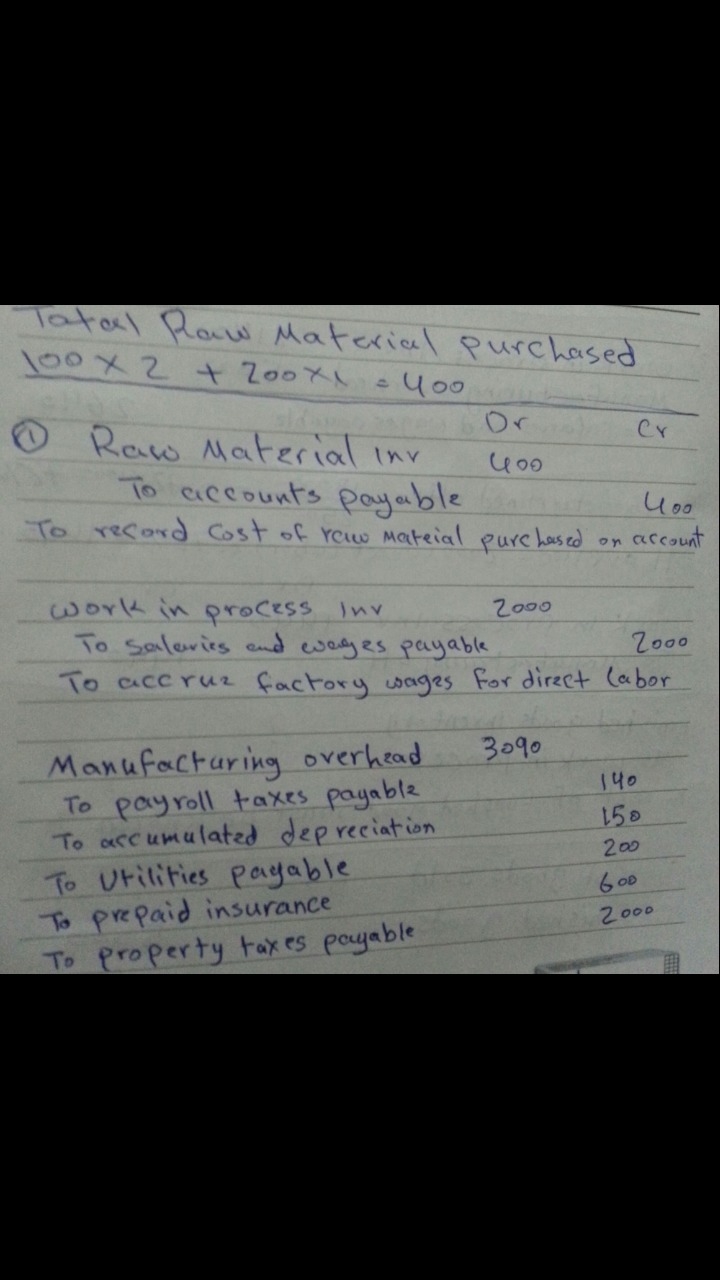 Total Raw Material purchased
100 x 2 + 200 x 1 = 400
Dr Cr
① Raw Material Inv 400
To accounts payable 400
To record Cost of raw Mateial purchased on account
work in process Inv 2000
To salaries and wages payable 2000
To accrue factory wages for direct labor
Manufacturing overhead 3090
To payroll taxes payable 140
To accumulated depreciation 150
To Utilities payable 200
To prepaid insurance 600
To property taxes payable 2000